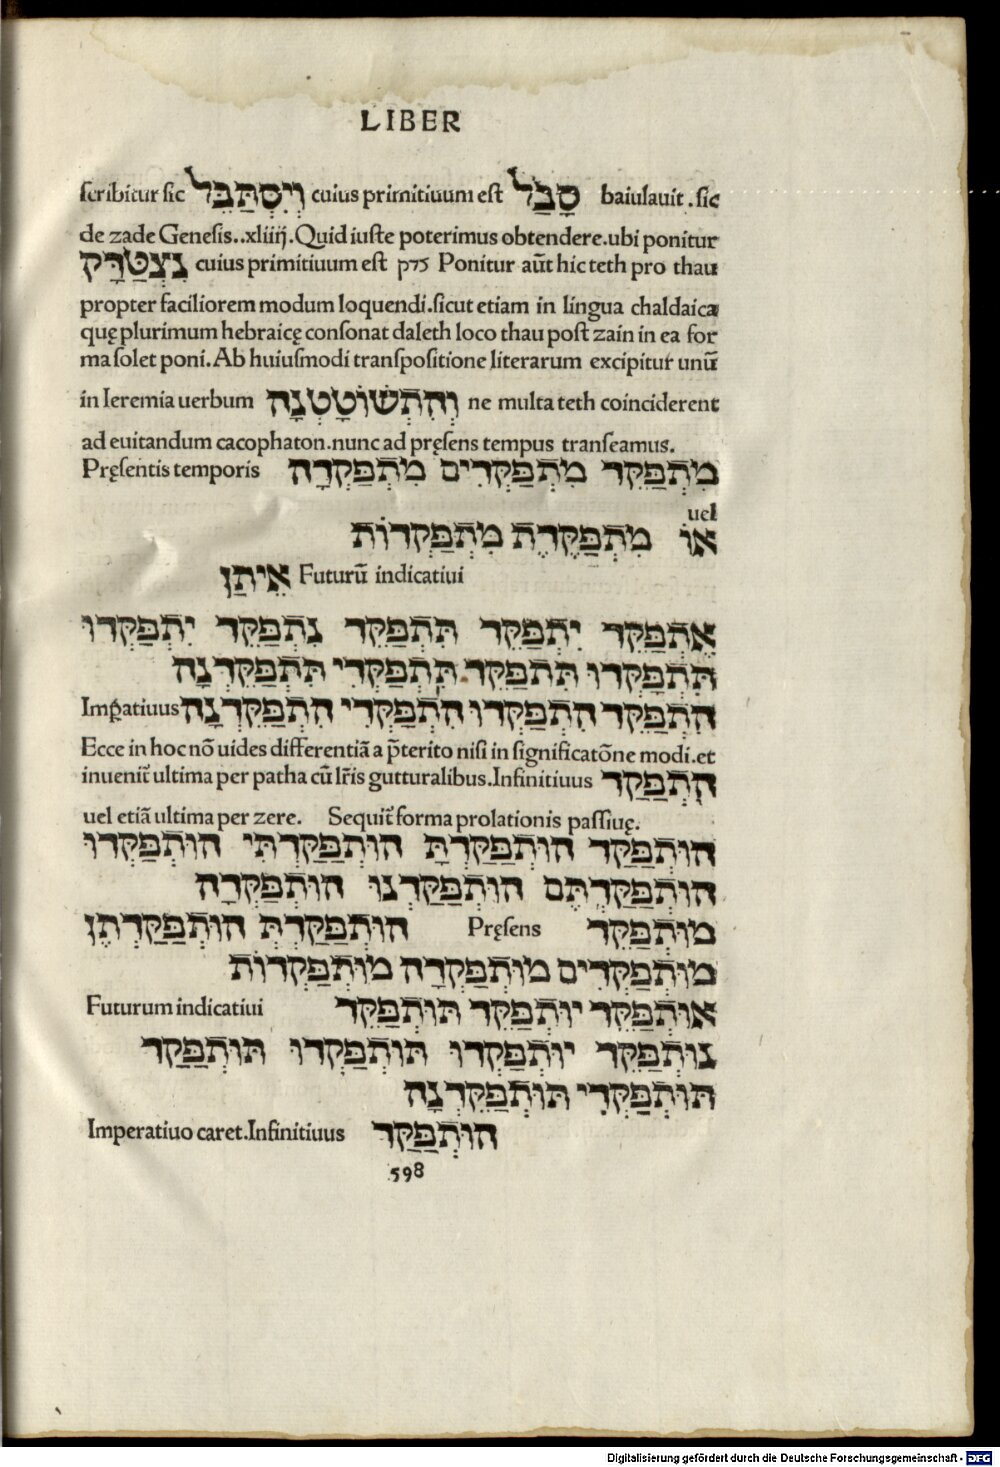 LIBER
scribitur sic וְיִסְתַּבֵּל cuius primitiuum est סָבַל baiulauit .sic
de zade Genesis..xliiij.Quid iuste poterimus obtendere.ubi ponitur
נִצְטַדָּק cuius primitiuum est צדק Ponitur aut̄ hic teth pro thau
propter faciliorem modum loquendi.sicut etiam in lingua chaldaica
quę plurimum hebraicę consonat daleth loco thau post zain in ea for
ma solet poni.Ab huiusmodi transpositione literarum excipitur unū
in Ieremia uerbum וְהִתְשׁוֹטָטְנָה ne multa teth coinciderent
ad euitandum cacophaton.nunc ad pręsens tempus transeamus.
Pręsentis temporis מִתְפַּקֵּד מִתְפַּקְּדִים מִתְפַּקְּדָה
uel
אוֹ מִתְפַּקֶּדֶת מִתְפַּקְּדוֹת
Futurū indicatiui אֵיתַן
אֶתְפַּקֵּד יִתְפַּקֵּד תִּתְפַּקֵּד נִתְפַּקֵּד יִתְפַּקְּדוּ
תִּתְפַּקְּדוּ תִּתְפַּקֵּד תִּתְפַּקְּדִי תִּתְפַּקֵּדְנָה
Imp̄atiuus הִתְפַּקֵּד הִתְפַּקְּדוּ הִתְפַּקְּדִי הִתְפַּקֵּדְנָה
Ecce in hoc nō uides differentiā a p̄terito nisi in significatōne modi.et
inuenit̄ ultima per patha cū lr̄is gutturalibus.Infinitiuus הִתְפַּקַּד
uel etiā ultima per zere. Sequit̄ forma prolationis passiuę.
הוּתְפַּקַּד הוּתְפַּקַּדְתָּ הוּתְפַּקַּדְתִּי הוּתְפַּקְּדוּ
הוּתְפַּקַּדְתֶּם הוּתְפַּקַּדְנוּ הוּתְפַּקְּדָה
הוּתְפַּקַּדְתְּ הוּתְפַּקַּדְתֶּן Pręsens מוּתְפַּקֵּד
מוּתְפַּקְּדִים מוּתְפַּקְּדָה מוּתְפַּקְּדוֹת
Futurum indicatiui אוּתְפַּקֵּד יוּתְפַּקֵּד תּוּתְפַּקֵּד
נוּתְפַּקֵּד יוּתְפַּקְּדוּ תּוּתְפַּקְּדוּ תּוּתְפַּקַּד
תּוּתְפַּקְּדִי תּוּתְפַּקֵּדְנָה
Imperatiuo caret.Infinitiuus הוּתְפַּקַּד
598
Digitalisierung gefördert durch die Deutsche Forschungsgemeinschaft - DFG